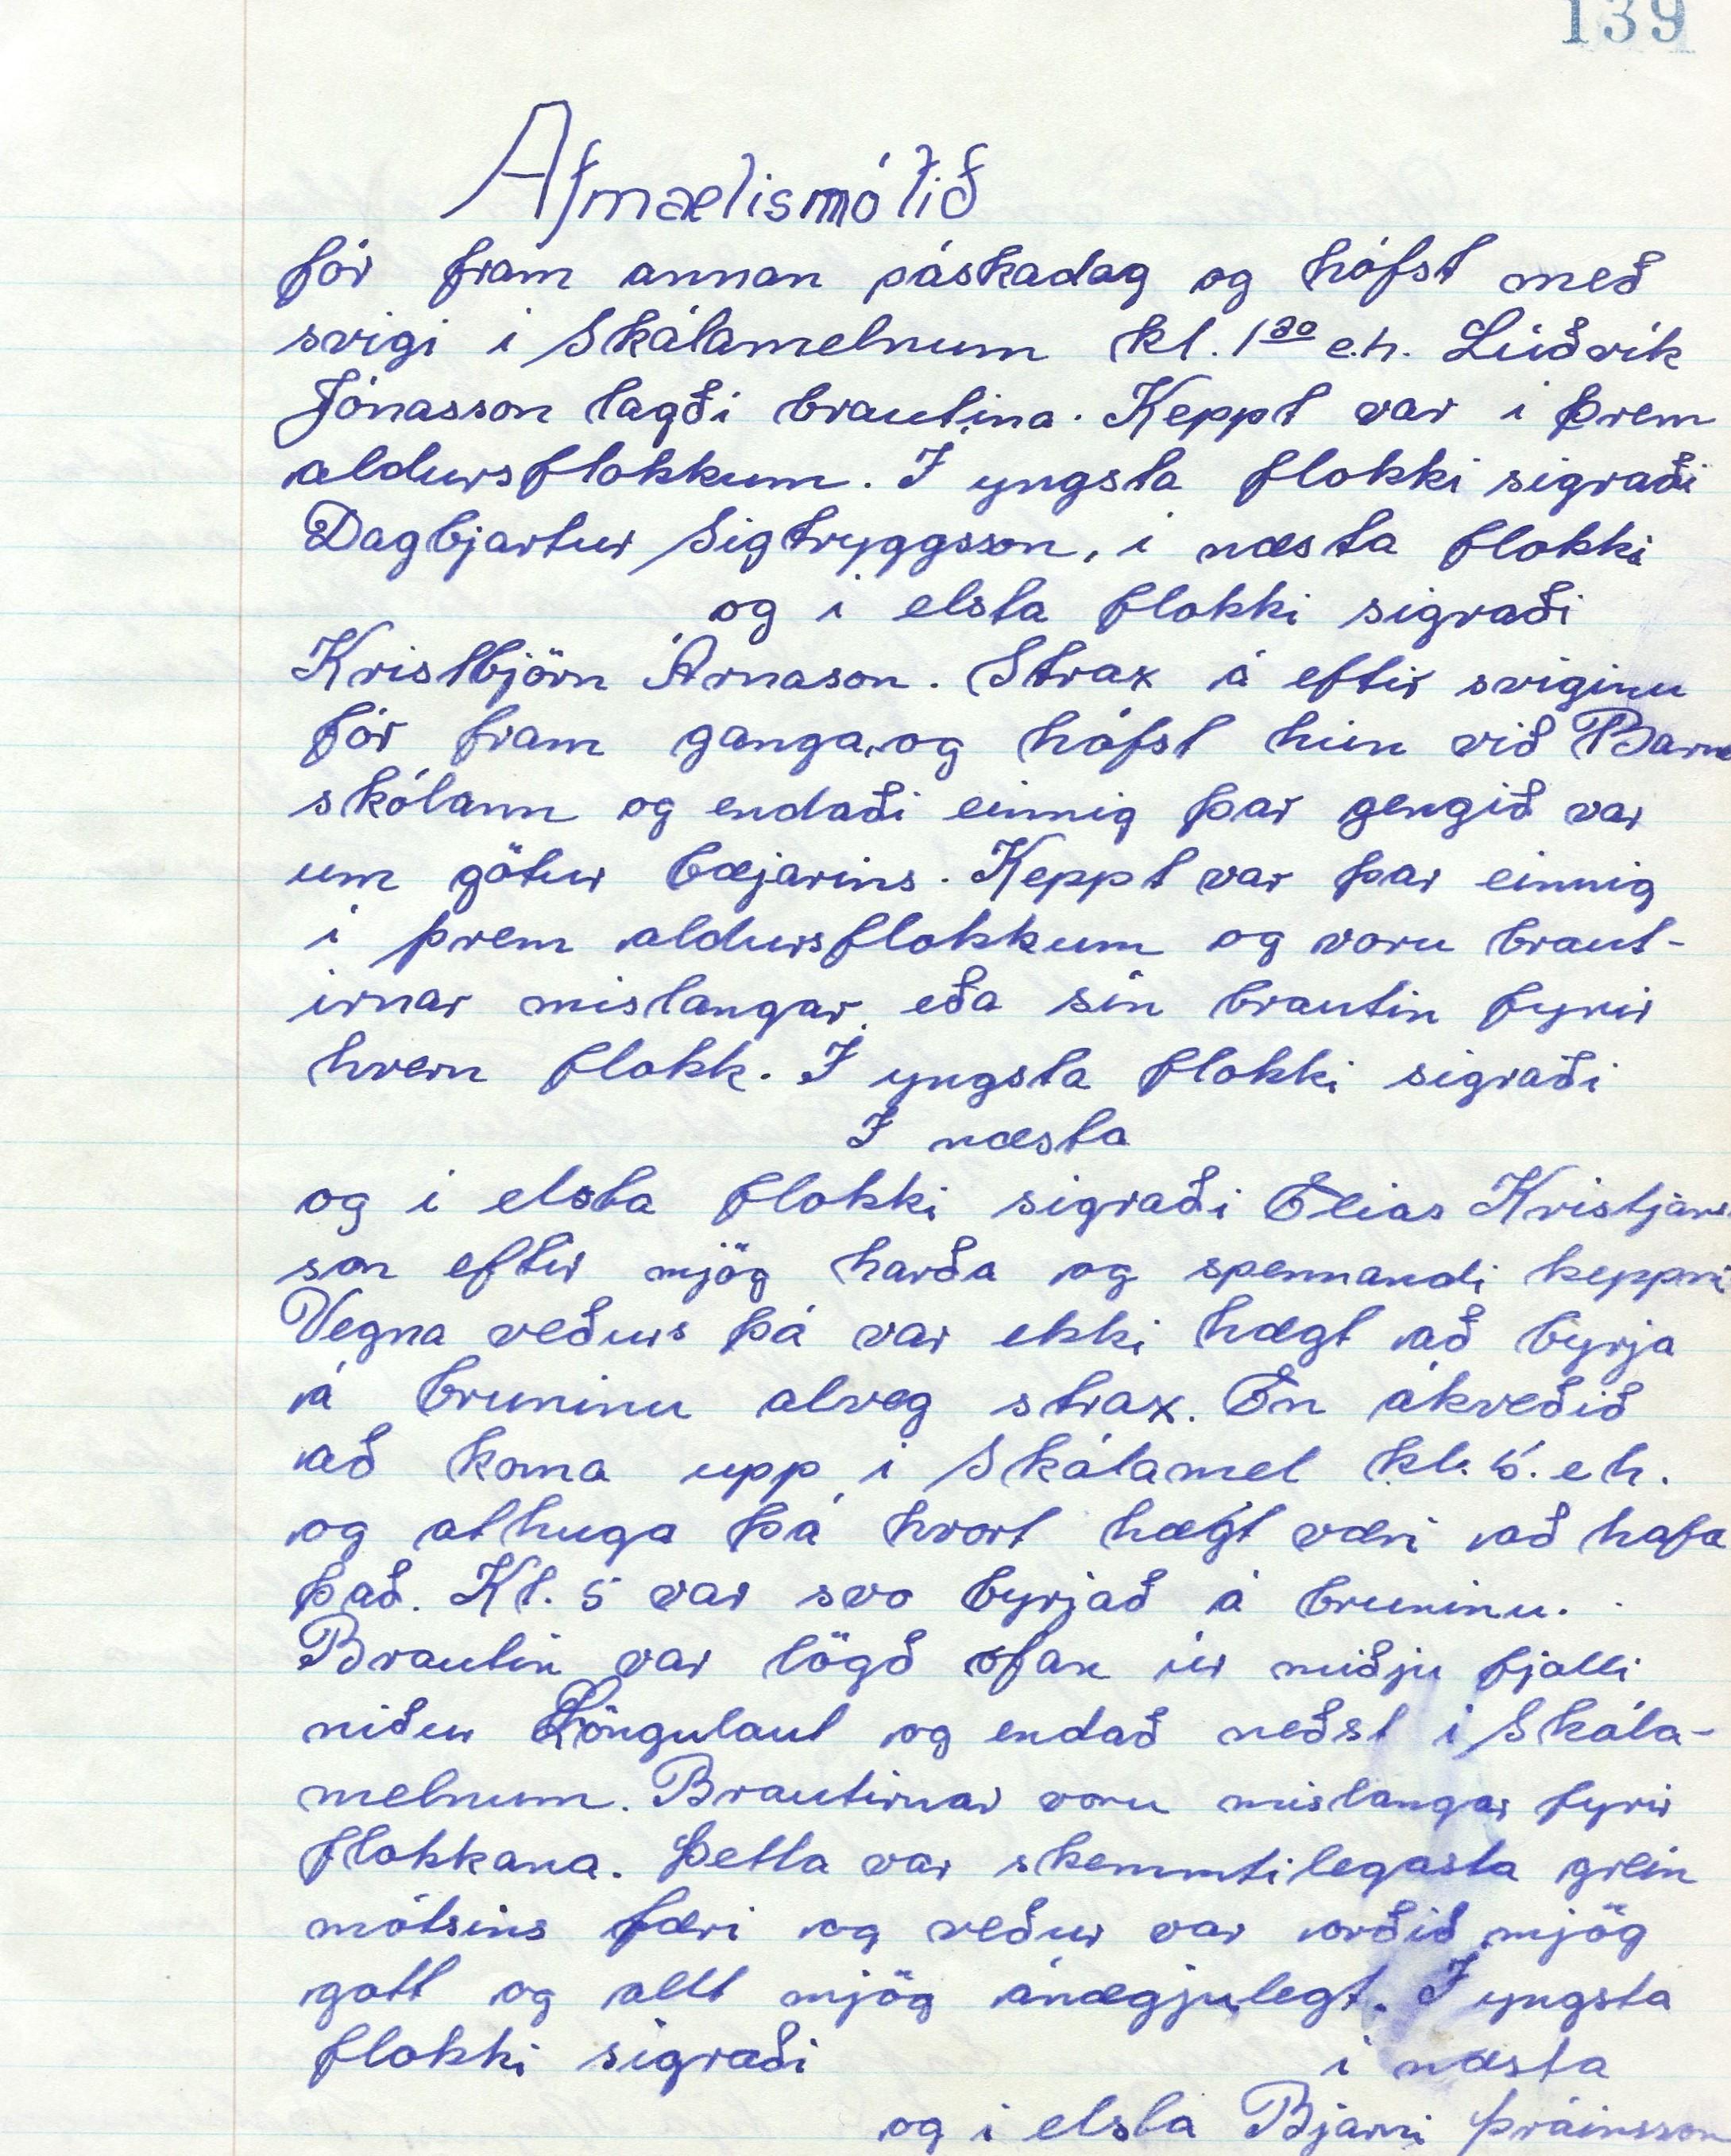 139
Afmælismótið
fór fram annan páskadag og hófst með
svigi í Skálamelnum kl. 1³⁰ e.h. Lúðvík
Jónasson lagði brautina. Keppt var í þrem
aldursflokkum. Í yngsta flokki sigraði
Dagbjartur Sigtryggsson, í næsta flokki
og í elsta flokki sigraði
Kristbjörn Árnason. Strax á eftir sviginu
fór fram ganga, og hófst hún við Barna
skólann og endaði einnig þar gengið var
um götur bæjarins. Keppt var þar einnig
í þrem aldursflokkum og voru braut-
irnar mislangar, eða sín brautin fyrir
hvern flokk. Í yngsta flokki sigraði
Í næsta
og í elsta flokki sigraði Elías Kristjáns
son eftir mjög harða og spennandi keppni
Vegna veðurs þá var ekki hægt að byrja
á bruninu alveg strax. En ákveðið
að koma upp í Skálamel kl. 5. e h.
og athuga þá hvort hægt væri að hafa
það. Kl. 5 var svo byrjað á bruninu.
Brautin var lögð ofan úr miðju fjalli
niður Löngulaut og endað neðst í Skála-
melnum. Brautirnar voru mislangar fyrir
flokkana. Þetta var skemmtilegasta grein
mótsins færi og veður var orðið mjög
gott og allt mjög ánægjulegt. Í yngsta
flokki sigraði í næsta
og í elsta Bjarni Þráinsson